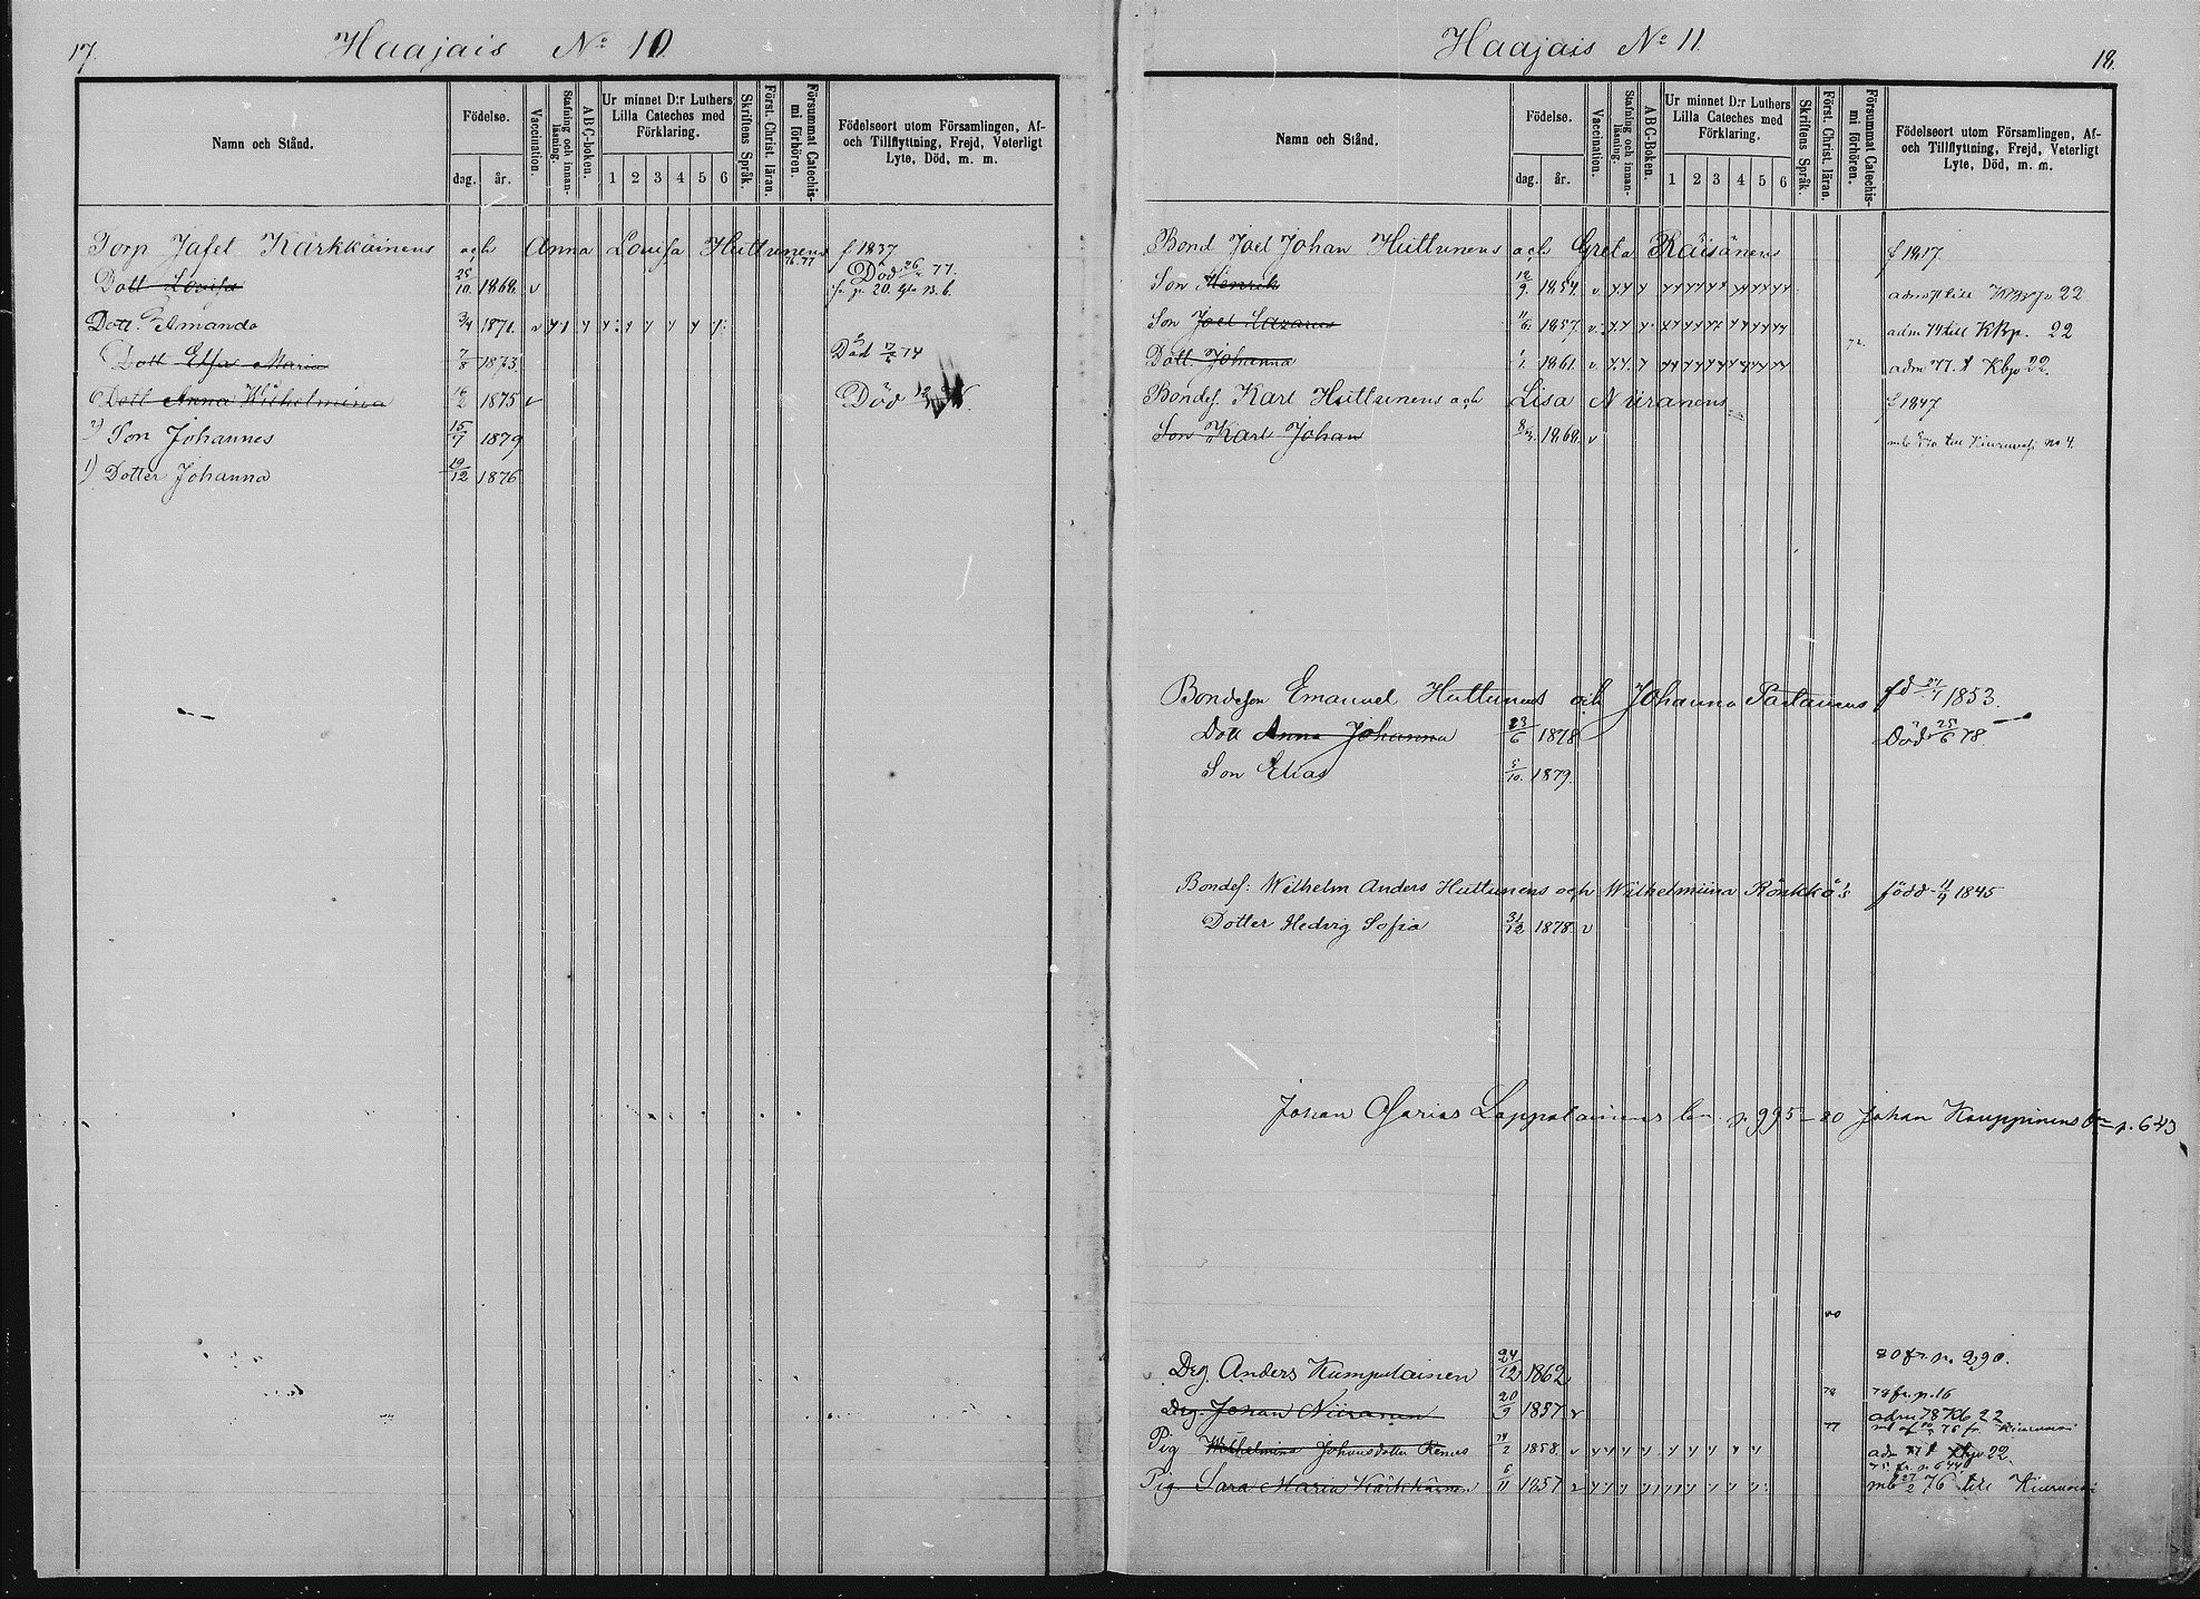 17.
Haajais No 10
Namn och Stånd.
Födelse.
dag.
år.
Vaccination.
Stafning och innan-
läsning.
ABC-boken.
Ur minnet D:r Luthers
Lilla Cateches med
Förklaring.
1 2 3 4 5 6
Skriftens Språk.
Först. Christ. läran.
Försummat Catechis-
mi förhören.
Födelseort utom Församlingen, Af-
och Tillflyttning, Frejd, Veterligt
Lyte, Död, m. m.
Torp Jafet Kärkkäinens och Anna Lovisa Huttunens f 1837
76.77
Dott Lovisa 25/10. 1868. v Död 26/ 77.
Dott. Amanda 3/4 1871. v
Dott Elsa Maria 7/8 1873. Död 74
Dott Anna Wilhelmina 16/2 1875 v Död
2) Son Johannes 15/7 1879
1) Dotter Johanna 19/12 1876
Haajais No 11
18.
Namn och Stånd.
Födelse.
dag.
år.
Vaccination.
Stafning och innan-
läsning.
ABC-Boken.
Ur minnet D:r Luthers
Lilla Cateches med
Förklaring.
1 2 3 4 5 6
Skriftens Språk.
Först. Christ. läran.
Försummat Catechis-
mi förhören.
Födelseort utom Församlingen, Af-
och Tillflyttning, Frejd, Veterligt
Lyte, Död, m. m.
Bond Joel Johan Huttunens och Greta Räisänens f 1817.
Son Henrik 12/9. 1854. v. till 22
Son Joel Lazarus 11/6. 1857. v. adm 74 till KBp. 22
Dott. Johanna 1/1. 1861. v. adm 77. t Kbp 22.
Bondes. Karl Huttunens och Lisa Niiranens f 1847
Son Karl Johan 1868. v till Kiuruvesi no 4.
Bondeson Emanuel Huttunens och Johanna Partanens fd 1853.
Dott Anna Johanna 23/6 1878 Död 25/6 78.
Son Elias 5/10. 1879.
Bondes: Wilhelm Anders Huttunens och Wilhelmiina Rönkkö's född 11/9 1845
Dotter Hedvig Sofia 31/12 1878. v
Johan Lappalainens p. 995 - 80 Johan Kauppinens p. 643
80
Drg. Anders Kumpulainen 24/12 1862 80 fr. p. 290.
Drg. Johan Niiranen 20/9 1857 v 78 78 fr. p. 16
adm 78 Kb 22
Pig Wilhelmina Johansdotter Remes 1858. v 77 76 fr. Kiuruvesi
22.
Pig Sara Maria Kärkkäinen 6/11 1857 v mb 27/2 76 till Kiuruvesi